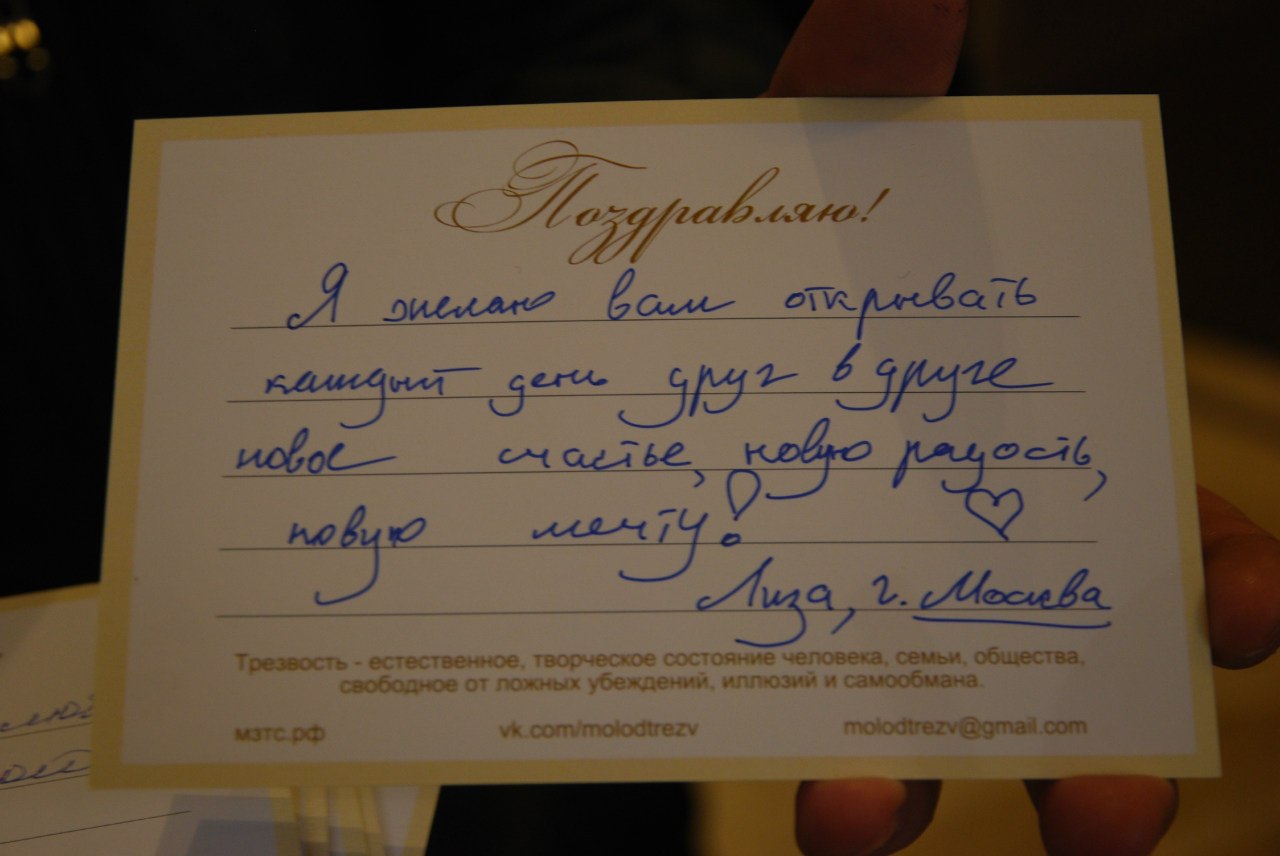 Поздравляю!
Я желаю вам открывать
каждый день друг в друге
новое счастье, новую радость,
новую мечту!
Лиза, г. Москва
Трезвость - естественное, творческое состояние человека, семьи, общества,
свободное от ложных убеждений, иллюзий и самообмана.
мзтс.рф vk.com/molodtrezv molodtrezv@gmail.com